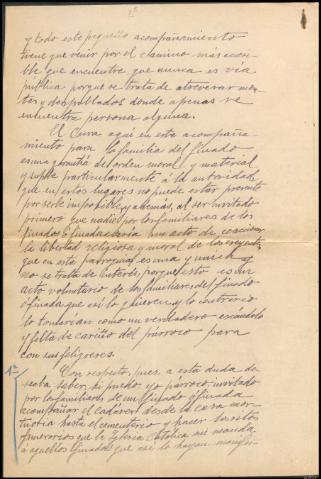 y todo este pequeño acompañamiento
tiene que venir por el camino más accesi-
ble que encuentre que nunca es vía
pública porque se trata de atravesar mon-
tes y despoblados donde apenas se
encuentra persona alguna.
El Cura aquí en este acompaña-
miento para la familia del finado
es una garantía del orden moral y material
y suple particularmente á la autoridad
que en estos lugares no puede estar presente
por serle imposible y además, al ser invitado
primero que nadie por los familiares de los
finados ó finadas sería un acto de coacción
la libertad religiosa y moral de los creyentes
que en esta parroquia es una y única y
no se trata de entierro, porque esto es un
acto voluntario de los familiares del finado
ó finada que así lo quieren y lo contrario
lo tomarían como un verdadero escándalo
y falta de cariño del párroco para
con sus feligreses.
1ª
Con respecto, pues, a esta duda de-
seaba saber si puedo yo párroco invitado
por los familiares de un finado ó finada
acompañar el cadáver desde la casa mor-
tuoria hasta el cementerio y hacer los ritos
funerarios que la Iglesia Católica me manda
á aquellos finados que así lo hayan manifes-